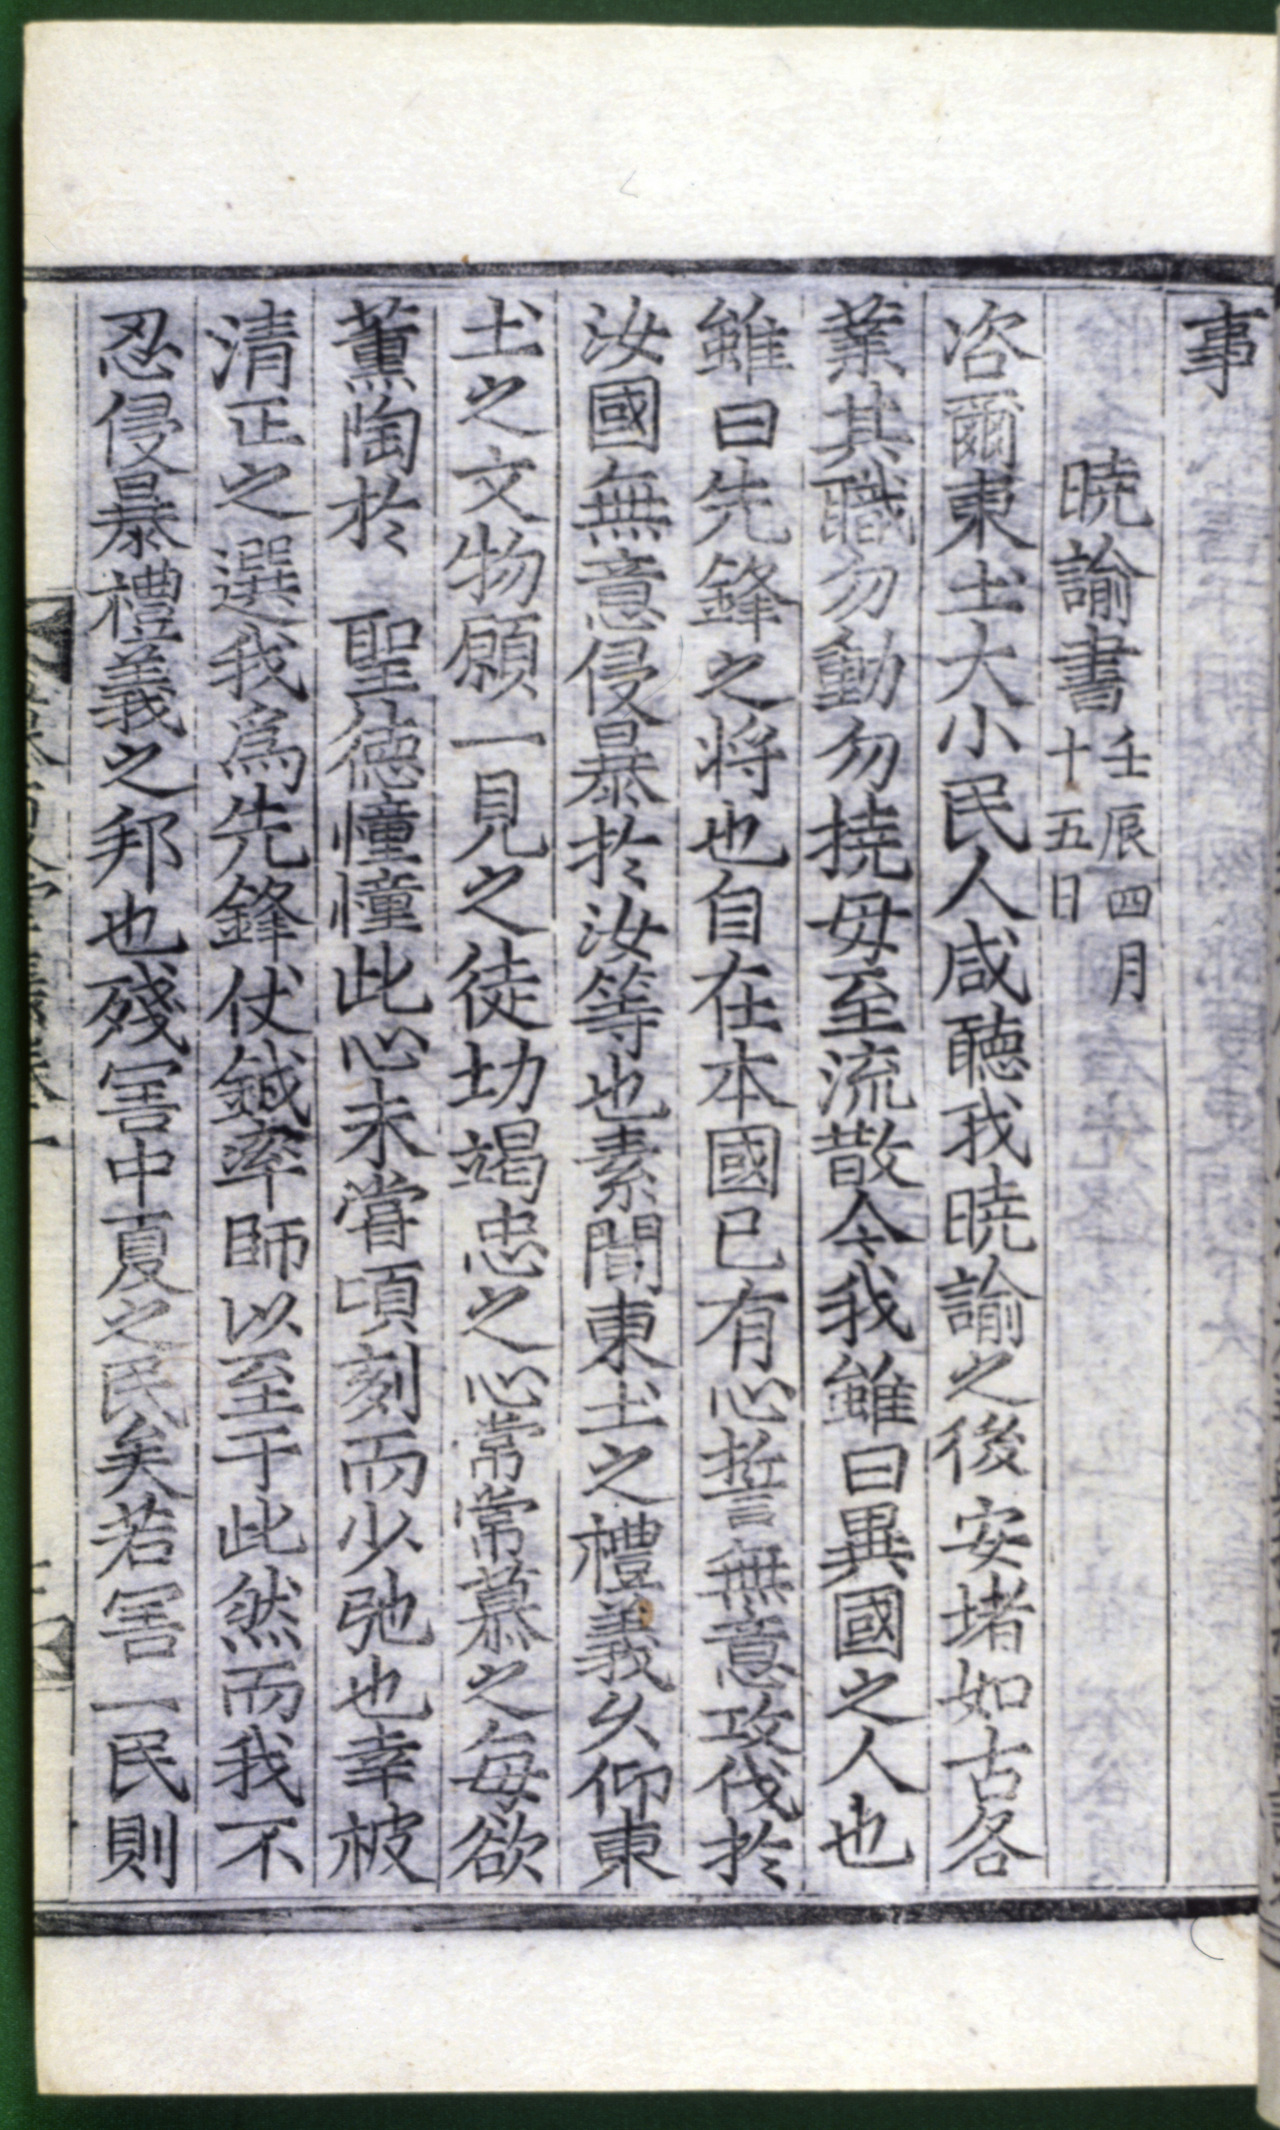 事
曉諭書壬辰四月十五日
咨爾東土大小民人咸聽我曉諭之後安堵如古各
業其職勿動勿撓毋至流散今我雖曰異國之人也
雖曰先鋒之將也自在本國已有心誓無意攻伐於
汝國無意侵暴於汝等也素聞東土之禮義久仰東
土之文物願一見之徒切竭忠之心常常慕之每欲
薰陶於 聖德憧憧此心未嘗頃刻而少弛也幸被
清正之選我爲先鋒仗鉞率師以至于此然而我不
忍侵暴禮義之邦也殘害中夏之民矣若害一民則